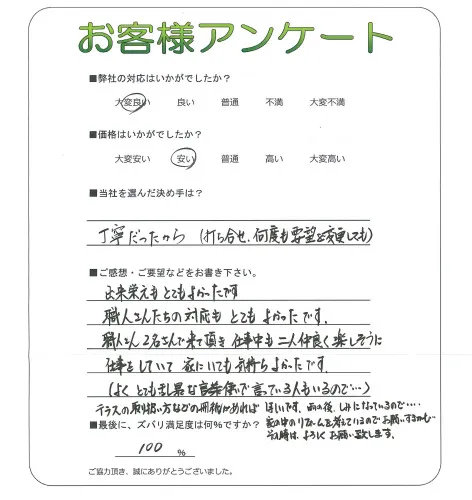 お客様アンケート
■弊社の対応はいかがでしたか?
大変良い 良い 普通 不満 大変不満
■価格はいかがでしたか?
大変安い 安い 普通 高い 大変高い
■当社を選んだ決め手は?
丁寧だったから (打ち合せ、何度も要望を変更しても)
■ご感想・ご要望などをお書き下さい。
出来栄えもとてもよかったです
職人さんたちの対応も とても よかったです.
職人さん2名さんで来て頂き 仕事中も 二人仲良く楽しそうに
仕事をしていて 家にいても気持ちよかったです.
(よく とても乱暴な言葉使で言っている人もいるので…)
テラスの取扱い方などの冊子があれば ほしいです. 雨の後、しみになっているので….
家の中のリフォームも考えているので お願いするかも…
その時は、よろしく お願い致します.
■最後に、ズバリ満足度は何%ですか?
100 %
ご協力頂き、誠にありがとうございました。